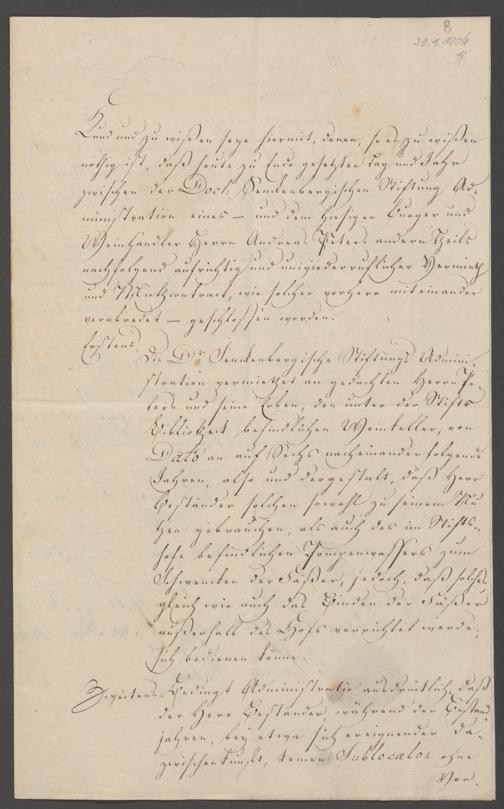 8
20.1.1806
Kund und zu wißen seye hiermit, denen, so es zu wißen
nöthig ist, daß heute zu Ende gesetzten Tag und Jahr
zwischen der Doct: Senkenbergischen Stiftung Ad-
ministration eines – und dem hiesigen Burger und
Weinhändler Herrn Andreas Peters andern Theils
nachfolgend aufrichtig und unwiederruflicher Vermieth
und Miethcontract, wie solcher vorhero miteinander
verabredet – geschlossen worden.
Erstens
Die Dr. Senkenbergische Stiftungs Admini-
stration vermiethet an gedachten Herrn Pe-
ters und seine Erben, den unter der Stifts
Bibliotheck befindlichen Weinkeller, von
Dato an auf Sechs nacheinander folgende
Jahren, also und dergestalt, daß Herr
Beständer solchen sowohl zu seinem Nu-
tzen gebrauchen, als auch des im Stifts-
hofe befindlichen Pompenwassers zum
Schwencken der Fäßer, jedoch, daß solches
gleich wie auch das Binden der Fäßer
außerhalb des Hofs verrichtet werde,
sich bedienen könne.
Zweitens. Bedingt Administratio ausdrücklich, daß
der Herr Beständer, während der Bestand
jahren, bey etwa sich ereignender Da-
zwischenkunft, keinen Sublocator ohne
Vor-